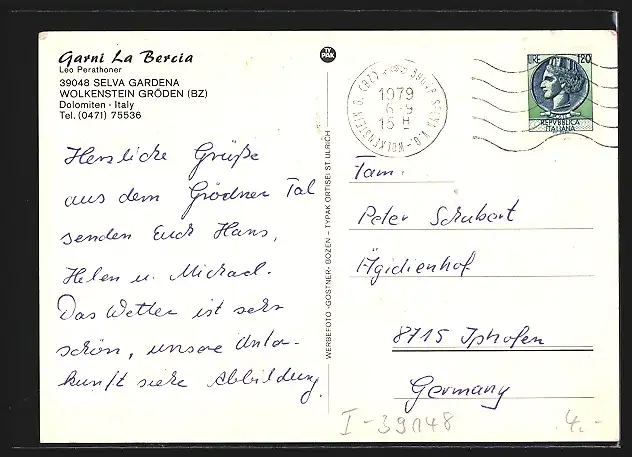 Garni La Bercia
Leo Perathoner
39048 SELVA GARDENA
WOLKENSTEIN GRÖDEN (BZ)
Dolomiten - Italy
Tel. (0471) 75536
Herzliche Grüße
aus dem Grödner Tal
senden Euch Hans,
Helen u. Michael.
Das Wetter ist sehr
schön, unsere Unter-
kunft siehe Abbildung.
TY
PAK
WERBEFOTO - GOSTNER - BOZEN - TYPAK ORTISEI ST. ULRICH
1979
LIRE 120
REPVBBLICA
ITALIANA
Fam.
Peter Schubert
Ägidienhof
8715 Iphofen
Germany
I-39048
4,-